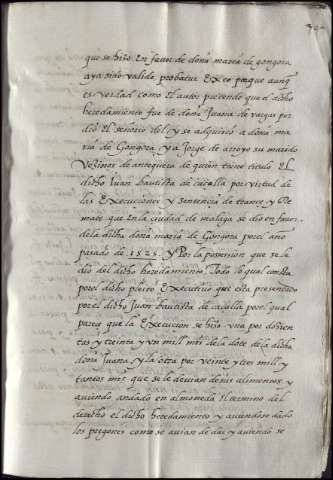 que se hizo En fauor de doña maria de gongora
aya sido valida probatur Ex eo porque aunq
es verdad como El autor pretende que el dicho
heredamiento fue de doña Juana de vargas per
dió El señorio del y se adquirió a doña ma
ria de Gongora y a Jorge de arroyo su marido
Vezinos de antequera de quien tiene titulo El
dicho Juan bautista de caçalla por virtud de
las Execuciones y sentencia de trance y Re
mate que En la ciudad de malaga se dio en fauor
de la dicha doña maria de Gongora por el año
pasado de 1525 y Por la possession que se le
dio del dicho heredamiento Todo lo qual consta
por el dicho pleito Executiuo que esta presentado
por el dicho Juan bautista de caçalla por el qual
pareçe que la Execucion se hizo vna por dozien
tas y treinta y vn mill mrs de la dote de la dicha
doña Juana y la otra por veinte y tres mill y
tantos mrs que se le deuian de sus alimentos y
auiendo andado en almoneda El termino del
derecho el dicho heredamiento y auiendose dado
los pregones como se auian de dar y auiendo se